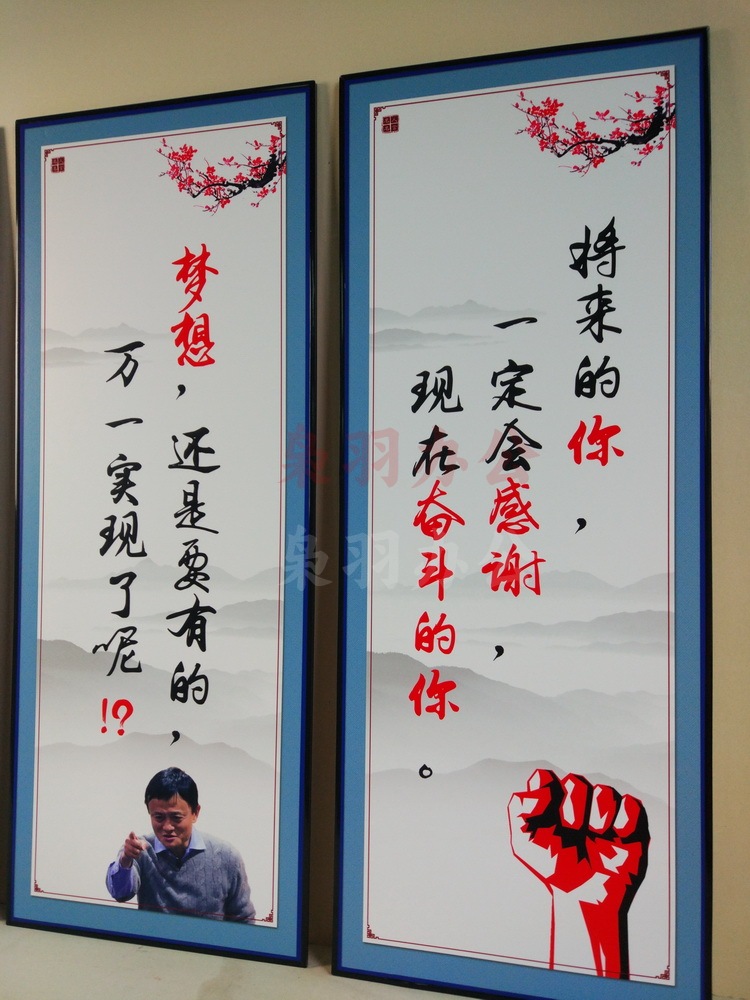 梦想，还是要有的，
万一实现了呢!?
将来的你，
一定会感谢，
现在奋斗的你。
枭羽办公
枭羽办公